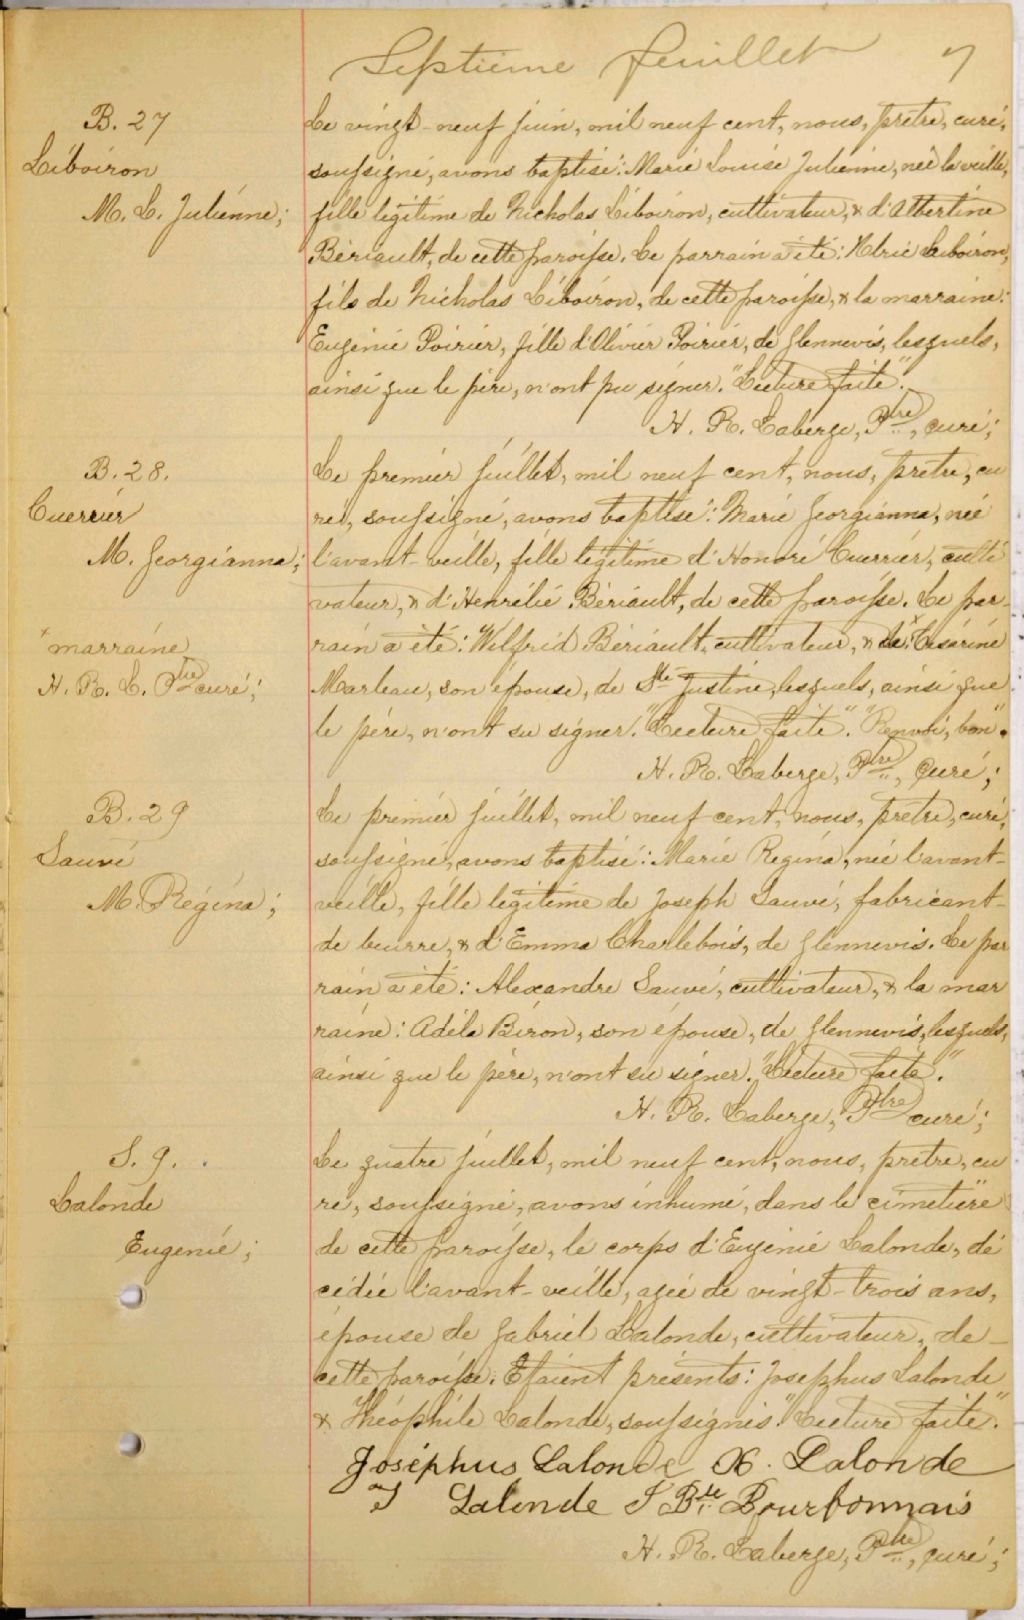 Septième feuillet 7
B. 27
Liboiron
M. L. Julienne;
Le vingt-neuf juin, mil neuf cent, nous, prêtre, curé,
soussigné, avons baptisé: Marie Louise Julienne, née la veille,
fille légitime de Nicholas Liboiron, cultivateur, & d'Albertine
Bériault, de cette paroisse. Le parrain a été: Liboiron,
fils de Nicholas Liboiron, de cette paroisse, & la marraine:
Eugénie Poirier, fille d'Olivier Poirier, de Glennevis, lesquels,
ainsi que le père, n'ont pu signer. "Lecture faite".
H. R. Laberge, Ptre, curé;
B. 28.
Cuerrier
M. Georgianna;
x marraine
H. R. L. Ptre curé;
Le premier juillet, mil neuf cent, nous, prêtre, cu
ré, soussigné, avons baptisé: Marie Georgianna, née
l'avant-veille, fille légitime d'Honoré Cuerrier, culti
vateur, & d'Henrélie Bériault, de cette paroisse. Le par-
rain a été: Wilfrid Bériault, cultivateur, & la x Césarine
Marleau, son épouse, de Ste Justine, lesquels, ainsi que
le père, n'ont su signer. "Lecture faite". "Renvoi, bon".
H. R. Laberge, Ptre, Curé;
B. 29
Sauvé
M. Régina;
Le premier juillet, mil neuf cent, nous, prêtre, curé,
soussigné, avons baptisé: Marie Regina, née l'avant-
veille, fille légitime de Joseph Sauvé, fabricant-
de beurre, & d'Emma Charlebois, de Glennevis. Le par
rain a été: Alexandre Sauvé, cultivateur, & la mar
raine: Adéla Biron, son épouse, de Glennevis, lesquels,
ainsi que le père, n'ont su signer. "Lecture faite".
H. R. Laberge, Ptre curé;
S. 9.
Lalonde
Eugenie;
Le quatre juillet, mil neuf cent, nous, prêtre, cu
ré, soussigné, avons inhumé, dans le cimetière
de cette paroisse, le corps d'Eugénie Lalonde, dé
cédée l'avant-veille, agée de vingt-trois ans,
épouse de Gabriel Lalonde, cultivateur, de-
cette paroisse. Etaient présents: Josephus Lalonde
& Théophile Lalonde, soussignés. "Lecture faite".
Joséphus Lalonde X. Lalonde
T Lalonde J Bte Bourbonnais
H. R. Laberge, Ptre, curé;